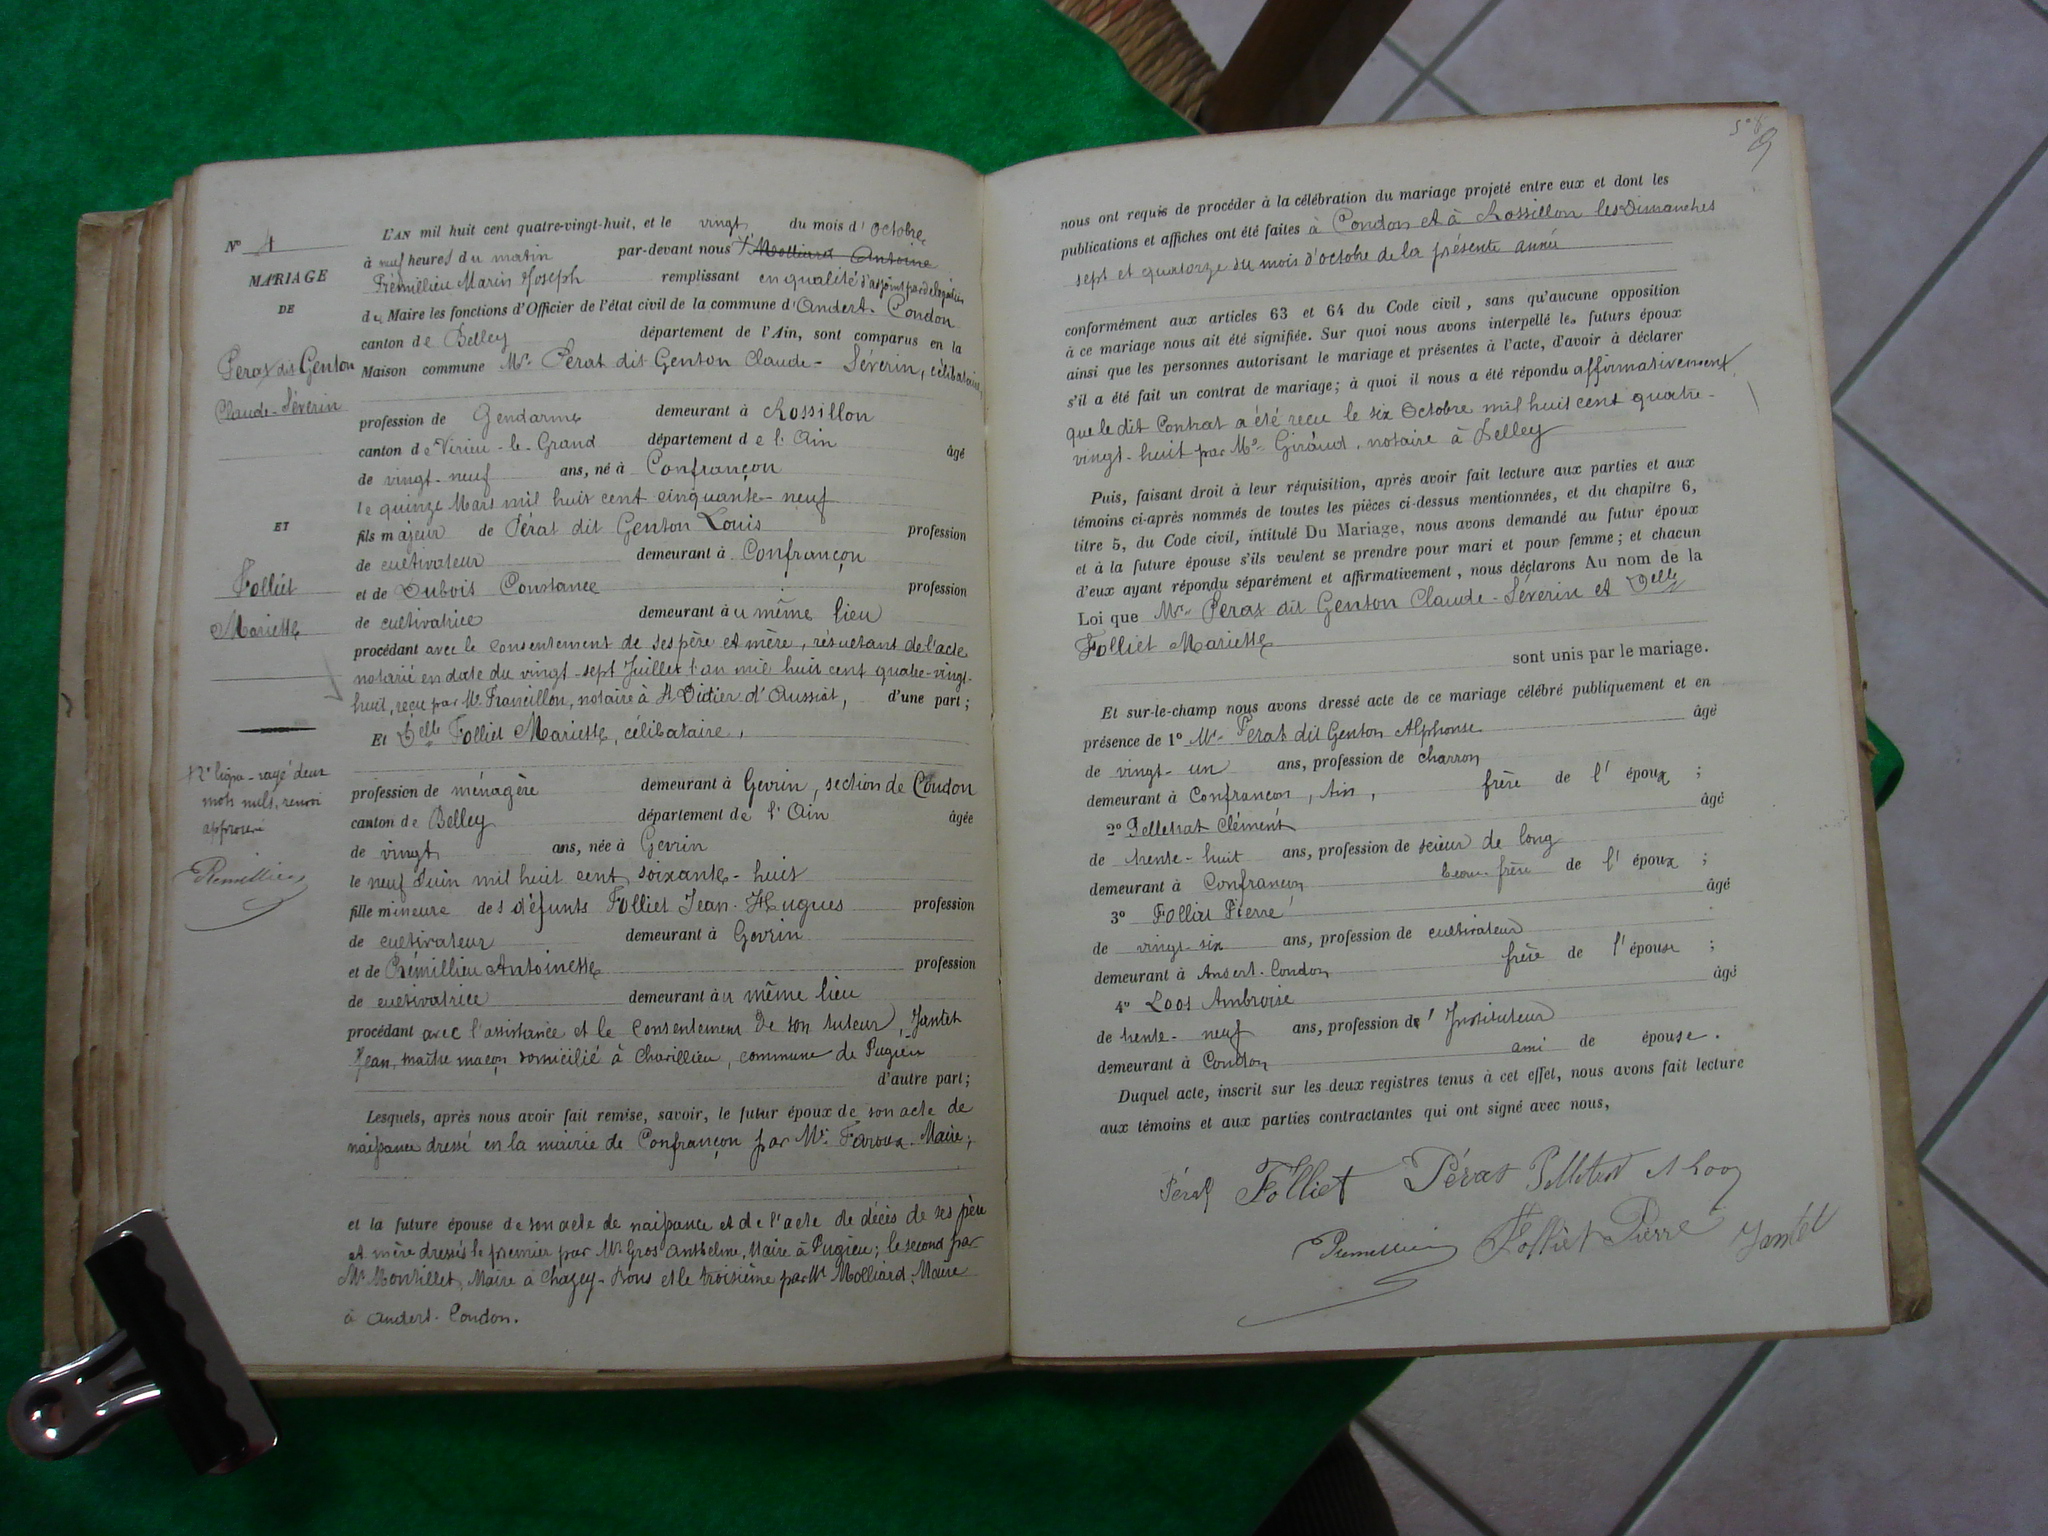 N° 4
MARIAGE
DE
Perat dit Genton
Claude-Séverin
ET
Folliet
Mariette
+2e ligne - rayé deux
mots nuls, renvoi
approuvé
Prémillieu
L'AN mil huit cent quatre-vingt-huit, et le vingt du mois d'octobre
à neuf heures du matin par-devant nous + Molliard Antoine
Prémillieu Marin Joseph remplissant en qualité d'adjoint par délégation
de Maire les fonctions d'Officier de l'état civil de la commune d'Andert-Condon
canton de Belley département de l'Ain, sont comparus en la
Maison commune Mr Perat dit Genton Claude-Séverin, célibataire,
profession de Gendarme demeurant à Rossillon
canton de Virieu-le-Grand département de l'Ain âgé
de vingt-neuf ans, né à Confrançon
le quinze Mars mil huit cent cinquante-neuf
fils majeur de Pérat dit Genton Louis profession
de cultivateur demeurant à Confrançon
et de Dubois Constance profession
de cultivatrice demeurant au même lieu
procédant avec le consentement de ses père et mère, résultant de l'acte
notarié en date du vingt-sept Juillet l'an mil huit cent quatre-vingt-
huit, reçu par Me Francillon, notaire à St Didier d'Aussiat, d'une part;
Et Delle Folliet Mariette, célibataire,
profession de ménagère demeurant à Gevrin, section de Condon
canton de Belley département de l'Ain âgée
de vingt ans, née à Gevrin
le neuf Juin mil huit cent soixante-huit
fille mineure des défunts Folliet Jean-Hugues profession
de cultivateur demeurant à Gevrin
et de Prémillieu Antoinette profession
de cultivatrice demeurant au même lieu
procédant avec l'assistance et le consentement de son tuteur, Jantet
Jean, maître maçon domicilié à Chavillieu, commune de Pugieu
d'autre part;
Lesquels, après nous avoir fait remise, savoir, le futur époux de son acte de
naissance dressé en la mairie de Confrançon par Mr Faroux Maire;
et la future épouse de son acte de naissance et de l'acte de décès de ses père
et mère dressés le premier par Mr Gros Anthelme, Maire à Pugieu; le second par
Mr Montillet, Maire à Chazey-Bons et le troisième par Mr Molliard, Maire
à Andert-Condon.
nous ont requis de procéder à la célébration du mariage projeté entre eux et dont les
publications et affiches ont été faites à Condon et à Rossillon les Dimanches
sept et quatorze du mois d'octobre de la présente année
conformément aux articles 63 et 64 du Code civil, sans qu'aucune opposition
à ce mariage nous ait été signifiée. Sur quoi nous avons interpellé les futurs époux
ainsi que les personnes autorisant le mariage et présentes à l'acte, d'avoir à déclarer
s'il a été fait un contrat de mariage; à quoi il nous a été répondu affirmativement
que le dit Contrat a été reçu le six Octobre mil huit cent quatre-
vingt-huit par Me Giraud, notaire à Belley
Puis, faisant droit à leur réquisition, après avoir fait lecture aux parties et aux
témoins ci-après nommés de toutes les pièces ci-dessus mentionnées, et du chapitre 6,
titre 5, du Code civil, intitulé Du Mariage, nous avons demandé au futur époux
et à la future épouse s'ils veulent se prendre pour mari et pour femme; et chacun
d'eux ayant répondu séparément et affirmativement, nous déclarons Au nom de la
Loi que Mr Perat dit Genton Claude-Séverin et Delle
Folliet Mariette
sont unis par le mariage.
Et sur-le-champ nous avons dressé acte de ce mariage célébré publiquement et en
présence de 1° Mr Perat dit Genton Alphonse âgé
de vingt-un ans, profession de charron
demeurant à Confrançon, Ain, frère de l'époux;
2° Pelletrat Clément âgé
de trente-huit ans, profession de scieur de long
demeurant à Confrançon beau-frère de l'époux;
3° Folliet Pierre âgé
de vingt six ans, profession de cultivateur
demeurant à Andert-Condon frère de l'épouse;
4° Loos Ambroise âgé
de trente-neuf ans, profession d'Instituteur
demeurant à Condon ami de épouse.
Duquel acte, inscrit sur les deux registres tenus à cet effet, nous avons fait lecture
aux témoins et aux parties contractantes qui ont signé avec nous,
Pérat Folliet Pérat Pelletrat A Loos
Prémillieu Folliet Pierre Jantet